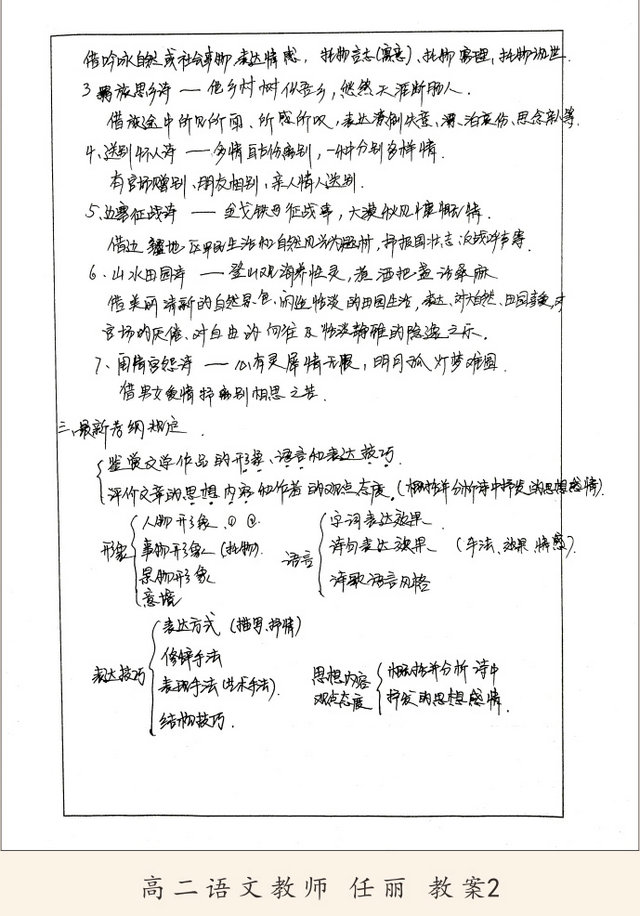 借吟咏自然或社会事物,表达情感,托物言志(寓意)、托物寓理,托物讽世.
3 羁旅思乡诗 — 他乡村树似吾乡,悠然天涯断肠人.
借旅途中所见所闻、所感所叹,表达凄恻失意、漂泊哀伤、思念亲人等.
4、送别怀人诗 — 多情自古伤离别,一种分别多样情.
有官场赠别、朋友相别,亲人情人送别.
5、边塞征战诗 — 金戈铁马征战事,大漠秋风慷慨情.
借边疆地区军民生活和自然风光为题材,抒报国壮志 反战呼声等.
6、山水田园诗 — 登山观海养性灵,煮酒把盏话桑麻
借美丽清新的自然景色、闲适恬淡的田园生活,表达 对大自然、田园喜爱,对
官场的厌倦、对自由的向往及恬淡静雅的隐逸之乐.
7、闺情宫怨诗 — 心有灵犀情无限,明月孤灯梦难圆
借男女爱情抒离别相思之苦.
三、最新考纲规定.
鉴赏文学作品的形象、语言和表达技巧.
评价文章的思想内容和作者的观点态度.(概括并分析诗中抒发的思想感情).
形象 人物形象 ① ②
事物形象 (托物)
景物形象
意境
语言 字词表达效果
诗句表达效果 (手法、效果、情感).
诗歌语言风格
表达技巧 表达方式 (描写、抒情)
修辞手法
表现手法(艺术手法).
结构技巧.
思想内容 概括并分析诗中
观点态度 抒发的思想感情.
高二语文教师 任丽 教案2